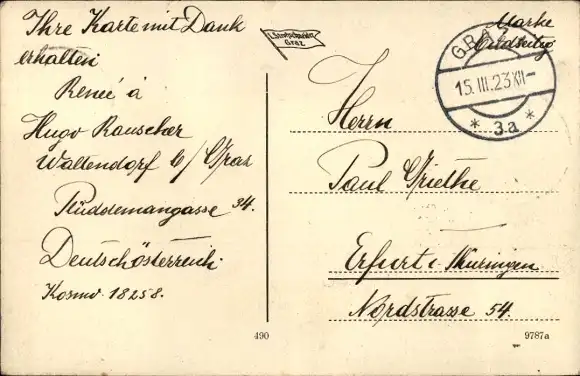 Ihre Karte mit Dank
erhalten
Reneé á
Hugo Rauscher
Waltendorf b/Graz
Rüddemangasse 34.
Deutschösterreich
Kosmo. 18258.
Graz
Marke
Bildseitig
GRAZ
15.III.23 XII-
* 3a *
Herrn
Paul Griethe
Erfurt i. Thüringen
Nordstrasse 54.
490
9787a